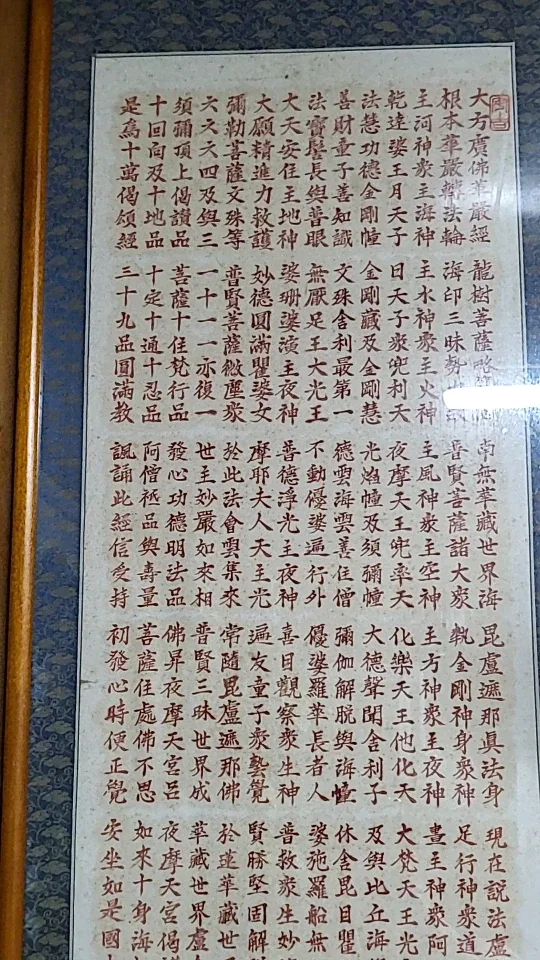 大方廣佛華嚴經 龍樹菩薩略 南無華藏世界海 毘盧遮那眞法身 現在說法盧
根本華嚴轉法輪 海印三昧勢 普賢菩薩諸大衆 執金剛神身衆神 足行神衆道
主河神衆主海神 主水神衆主火神 主風神衆主空神 主方神衆主夜神 晝主神衆阿
乾達婆王月天子 日天子衆兜利天 夜摩天王兜率天 化樂天王他化天 大梵天王光
法慧功德金剛幢 金剛藏及金剛慧 光焰幢及須彌幢 大德聲聞舍利子 及與比丘海
善財童子善知識 文殊舍利最第一 德雲海雲善住僧 彌伽解脫與海幢 休舍毘目瞿
法寶髻長與普眼 無厭足王大光王 不動優婆遍行外 優婆羅華長者人 婆施羅船無
大天安住主地神 婆珊婆演主夜神 普德淨光主夜神 喜目觀察衆生神 普救衆生妙
大願精進力救護 妙德圓滿瞿婆女 摩耶夫人天主光 遍友童子衆藝覺 賢勝堅固解
彌勒菩薩文殊等 普賢菩薩微塵衆 於此法會雲集來 常隨毘盧遮那佛 於蓮華藏世
六六六四及與三 一十一一亦復一 世主妙嚴如來相 普賢三昧世界成 華藏世界盧
須彌頂上偈讚品 菩薩十住梵行品 發心功德明法品 佛昇夜摩天宮品 夜摩天宮偈
十回向及十地品 十定十通十忍品 阿僧祇品與壽量 菩薩住處佛不思 如來十身海
是爲十萬偈頌經 三十九品圓滿敎 諷誦此經信受持 初發心時便正覺 安坐如是國